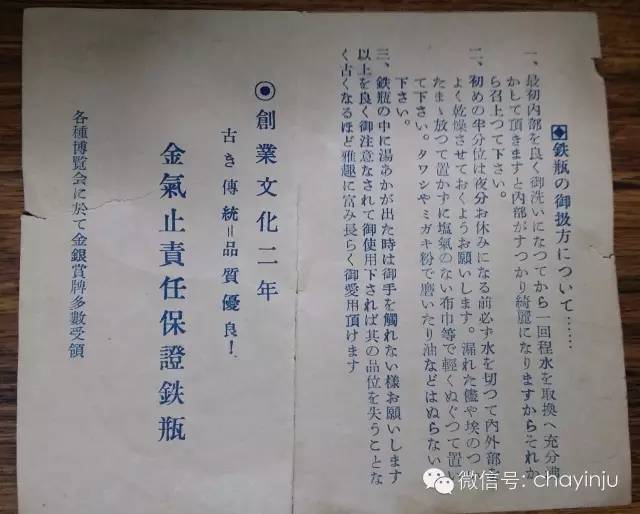 ◈鉄瓶の御扱方について……
一、最初内部を良く御洗いになつてから一回程水を取換へ充分沸
かして頂きますと内部がすつかり綺麗になりますからそれか
ら召上つて下さい。
二、初めの半分位は夜分お休みになる前必ず水を切つて内外部を
よく乾燥させておくようお願いします。漏れた儘や埃のつい
たまゝ放つて置かずに塩氣のない布巾等で軽くぬぐつて置い
て下さい。タワシやミガキ粉で磨いたり油などはぬらないで
下さい。
三、鉄瓶の中に湯あかが出た時は御手を觸れない様お願いします
以上を良く御注意なされて御使用下されば其の品位を失うことな
く古くなるほど雅趣に富み長らく御愛用頂けます
◉創業文化二年
古き傳統＝品質優良！
金氣止責任保證鉄瓶
各種博覧会に於て金銀賞牌多數受領
微信号: chayinju